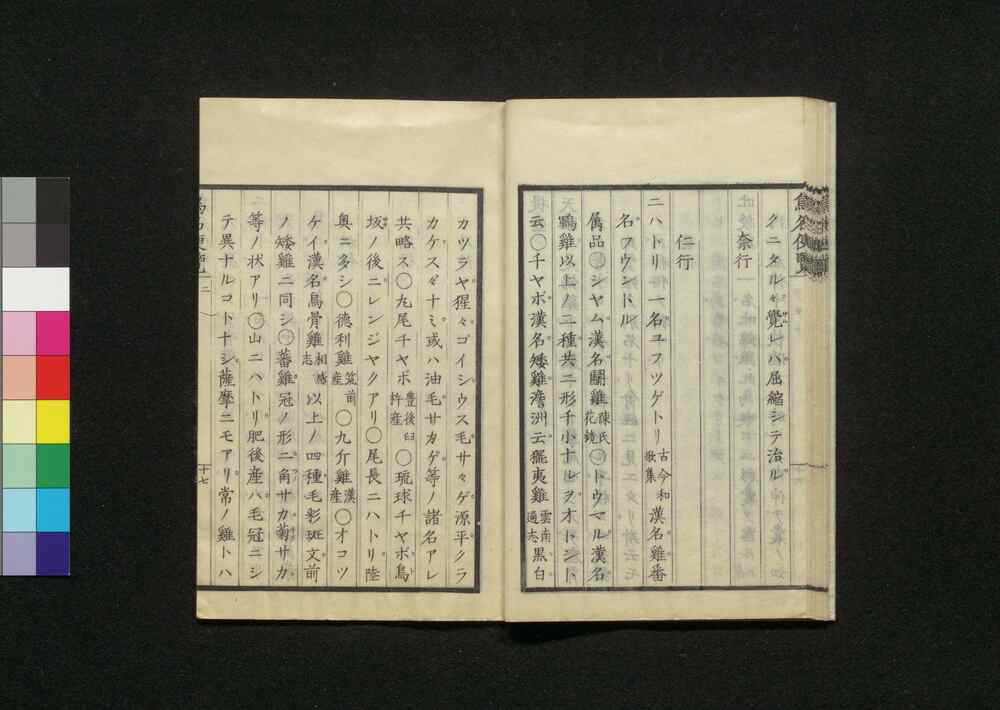 クニタルヲ覺レハ屈縮シテ治ル
奈行
仁行
ニハトリ 一名ユフツゲトリ 古今和歌集 漢名雞 番
名フウンドル
屬品〇シヤム漢名鬪雞 陳氏花鏡 〇トウマル漢名
鶤雞以上ノ二種共ニ形千小ナルヲオトシト
云〇千ヤボ漢名矮雞澹洲云擺夷雞 雲南通志 黒白
カツラヤ猩々ゴイシウス毛サヽゲ源平クラ
カケスヾナミ或ハ油毛サカゲ等ノ諸名アレ
共略ス〇九尾千ヤボ 豊後臼杵産 〇琉球千ヤボ鳥
坂ノ後ニレンジヤクアリ〇尾長ニハトリ陸
奥ニ多シ〇德利雞 筑前産 〇九斤雞 漢産 〇オコツ
ケイ漢名烏骨雞 相感志 以上ノ四種毛彩斑文前
ノ矮雞ニ同シ〇蕃雞冠ノ形ニ角サカ菊サカ
等ノ状アリ〇山ニハトリ肥後産ハ毛冠ニシ
テ異ナルコトナシ薩摩ニモアリ常ノ雞トハ
十七